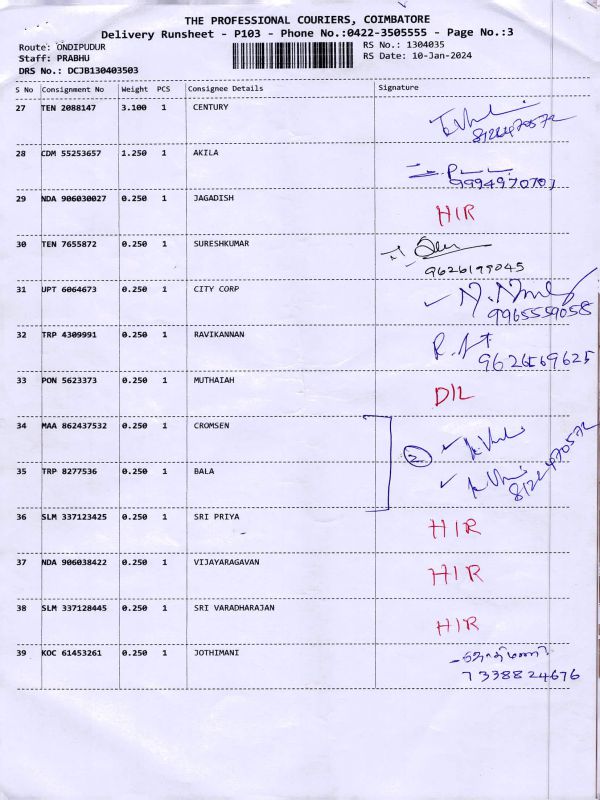 THE PROFESSIONAL COURIERS, COIMBATORE
Delivery Runsheet - P103 - Phone No.:0422-3505555 - Page No.:3
Route: ONDIPUDUR RS No.: 1304035
Staff: PRABHU RS Date: 10-Jan-2024
DRS No.: DCJB130403503
S No Consignment No Weight PCS Consignee Details Signature
27 TEN 2088147 3.100 1 CENTURY
8122470572
28 CDM 55253657 1.250 1 AKILA
9994970701
29 NDA 906030027 0.250 1 JAGADISH HIR
30 TEN 7655872 0.250 1 SURESHKUMAR
9626199045
31 UPT 6064673 0.250 1 CITY CORP
9965559058
32 TRP 4309991 0.250 1 RAVIKANNAN
9626569625
33 PON 5623373 0.250 1 MUTHAIAH D/L
34 MAA 862437532 0.250 1 CROMSEN
2
35 TRP 8277536 0.250 1 BALA
8122470572
36 SLM 337123425 0.250 1 SRI PRIYA HIR
37 NDA 906038422 0.250 1 VIJAYARAGAVAN HIR
38 SLM 337128445 0.250 1 SRI VARADHARAJAN HIR
39 KOC 61453261 0.250 1 JOTHIMANI ஜோதிமணி
7338824676